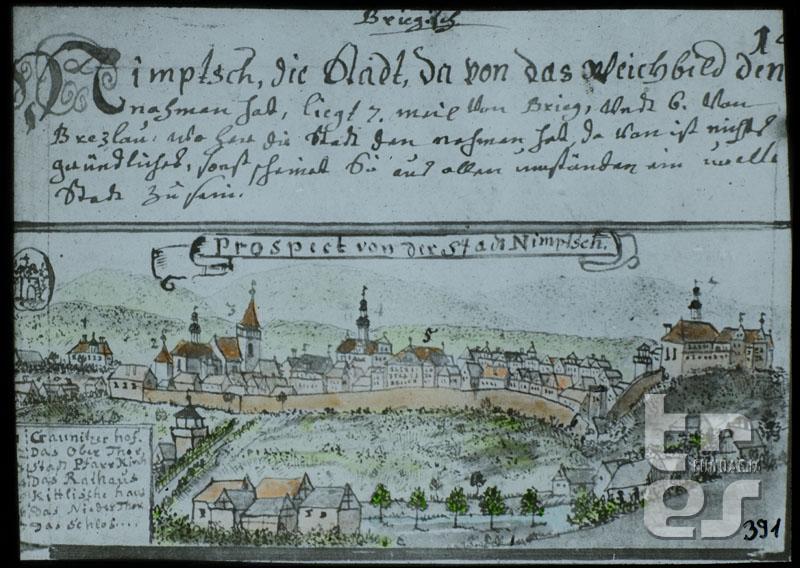 Briegisch
14
Nimptsch, die Stadt, da von das Weichbild den
nahmen hat, liegt 7. meil von Brieg, undt 6. von
Breslau; wo her die Stadt den nahmen hat, da von ist nichts
gründliches, sonst scheinet Sie aus allen umständen ein uralte
Stadt zu sein.
Prospect von der Stadt Nimptsch.
1 2 3 4 5
Craunitzer hof.
Das Ober Thor,
Stadt Pfarr Kirch
Das Rathaus
Kittlische haus
Das Nieder Thor
Das Schlos....
tres
FUNDACJA
391